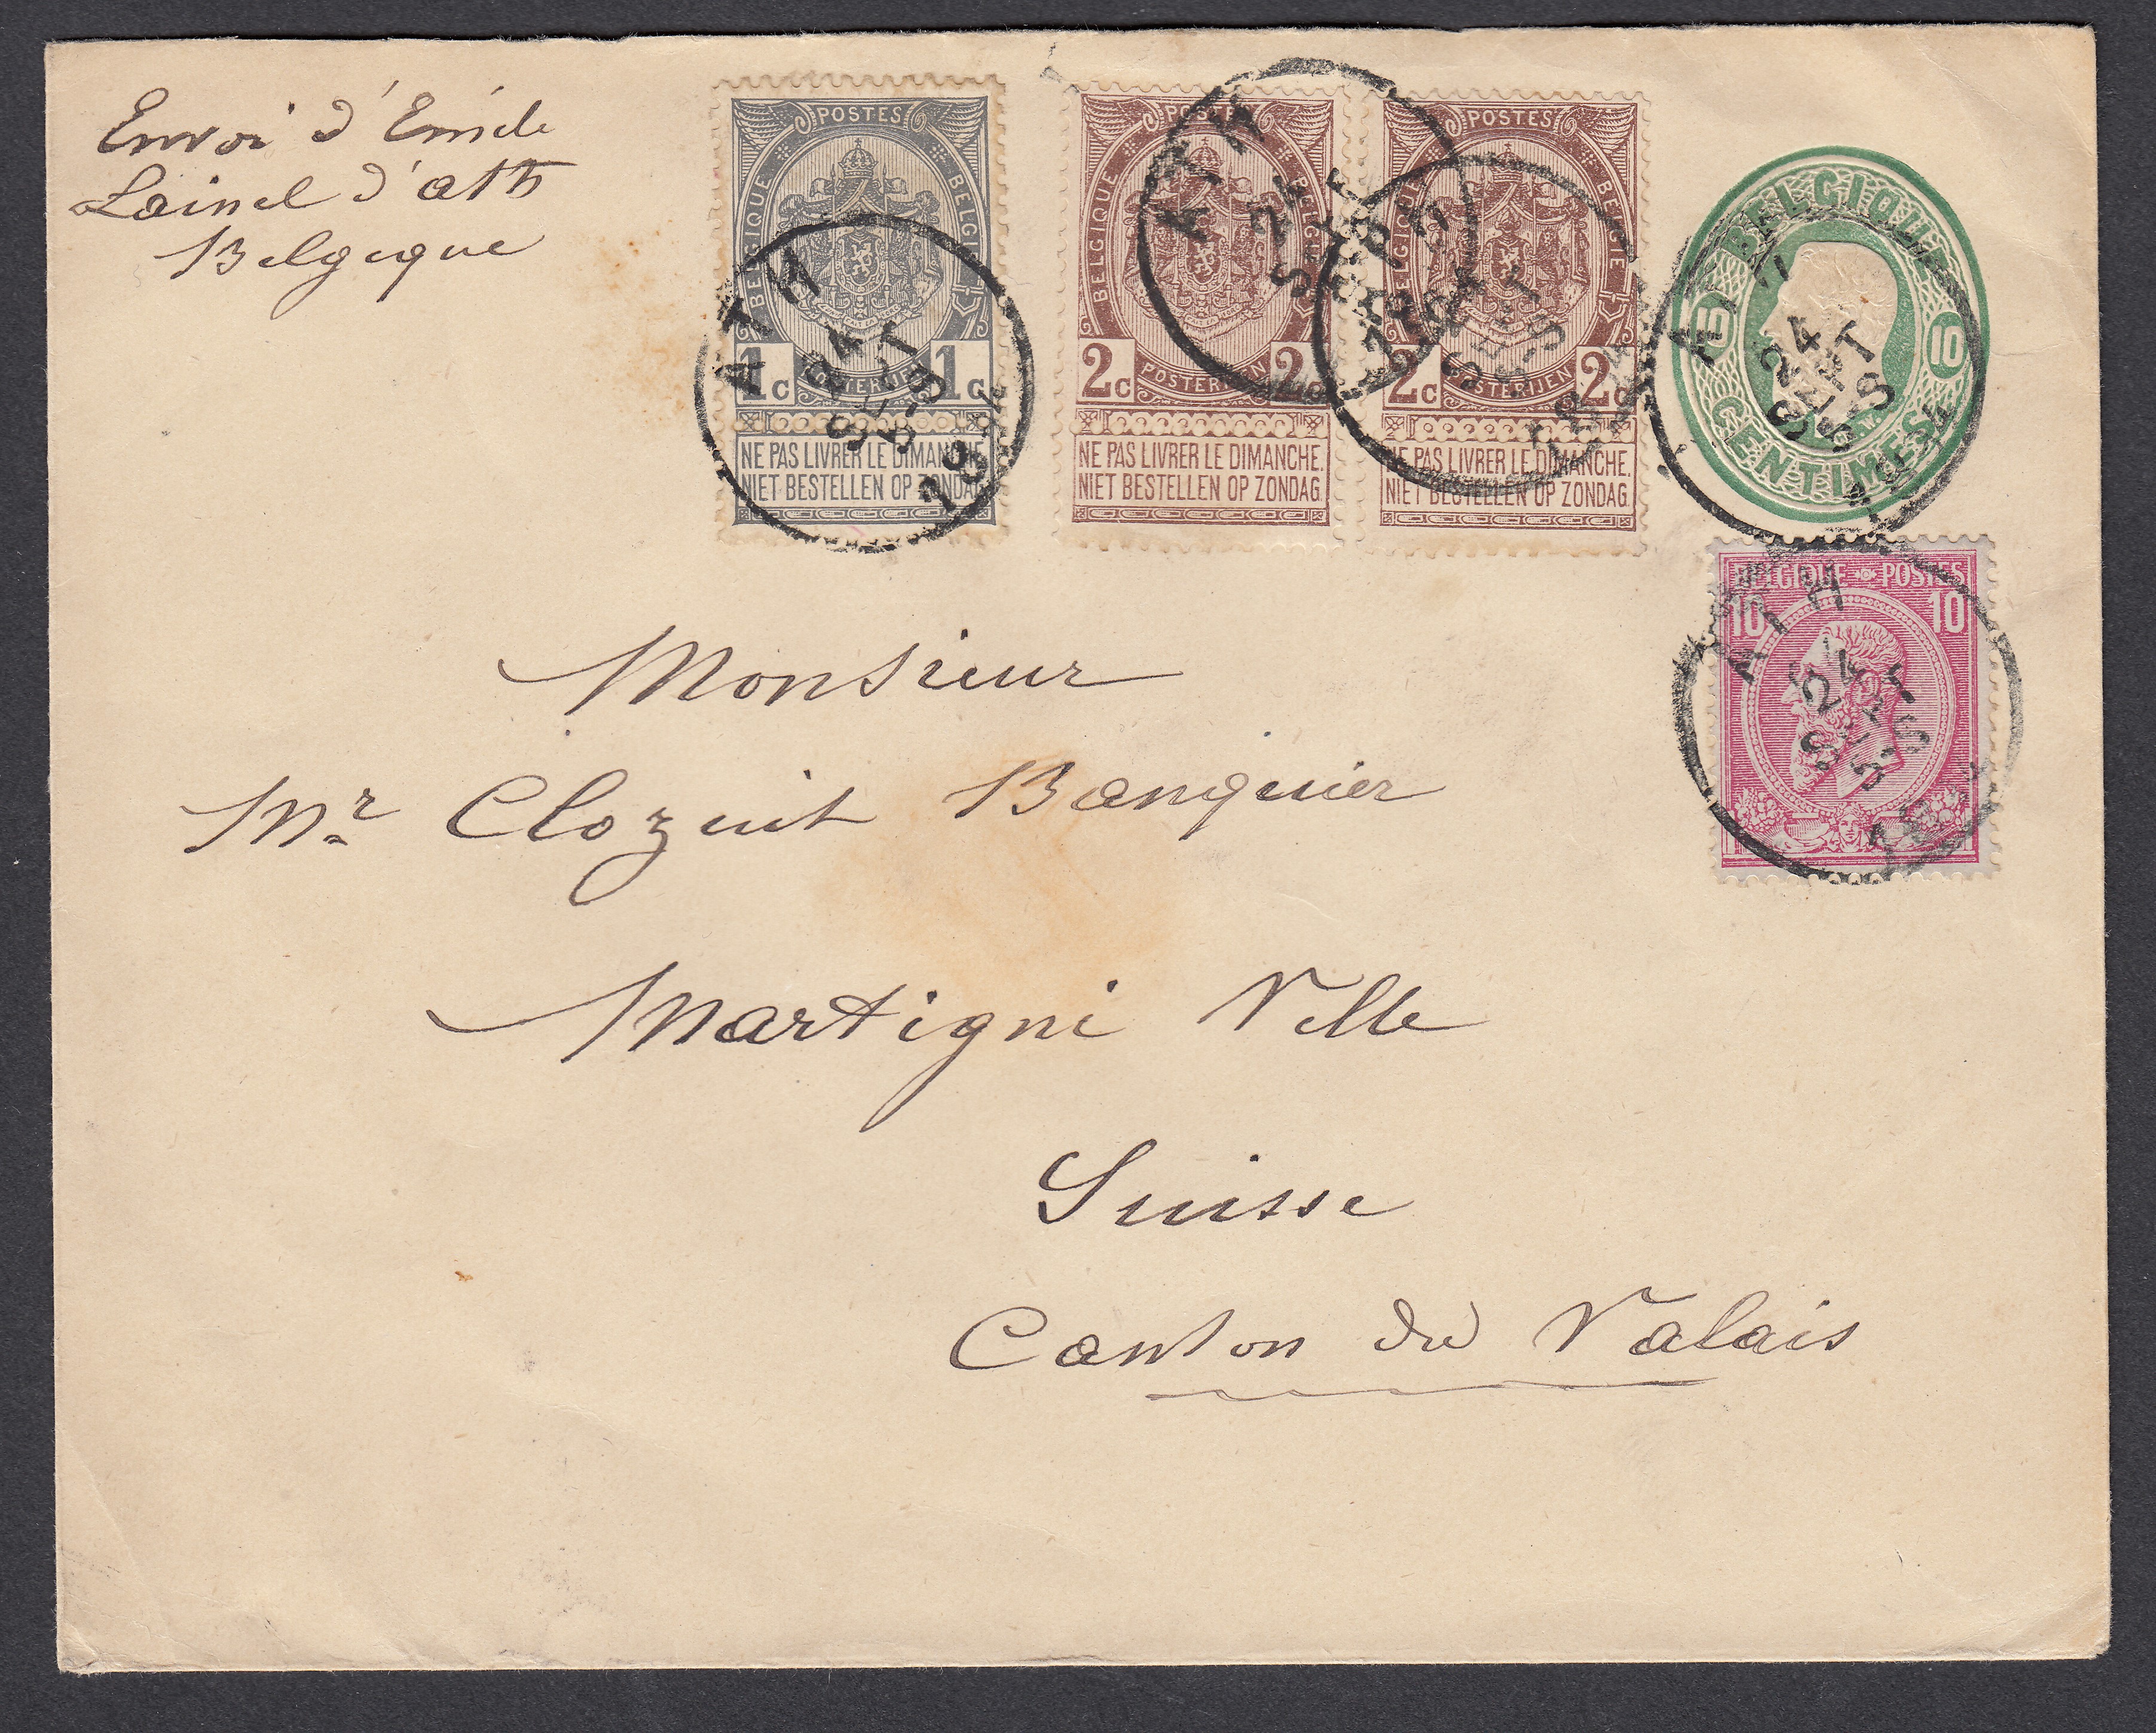 Envoi d'Emile
Lainel d'ath
Belgique
POSTES
BELGIQUE
BELGIE
1c POSTERIJEN 1c
NE PAS LIVRER LE DIMANCHE.
NIET BESTELLEN OP ZONDAG
ATH
24
SEPT
5-S
POSTES
BELGIQUE
BELGIE
2c POSTERIJEN 2c
NE PAS LIVRER LE DIMANCHE.
NIET BESTELLEN OP ZONDAG.
ATH
24
POSTES
BELGIQUE
BELGIE
2c POSTERIJEN 2c
NE PAS LIVRER LE DIMANCHE.
NIET BESTELLEN OP ZONDAG.
24
SEPT
5-S
BELGIQUE
10 10
CENTIMES
24
SEPT
5-S
BELGIQUE POSTES
10 10
ATH
24
SEPT
5-S
Monsieur
Mr Clozuit Banquier
Martigni Ville
Suisse
Canton du Valais